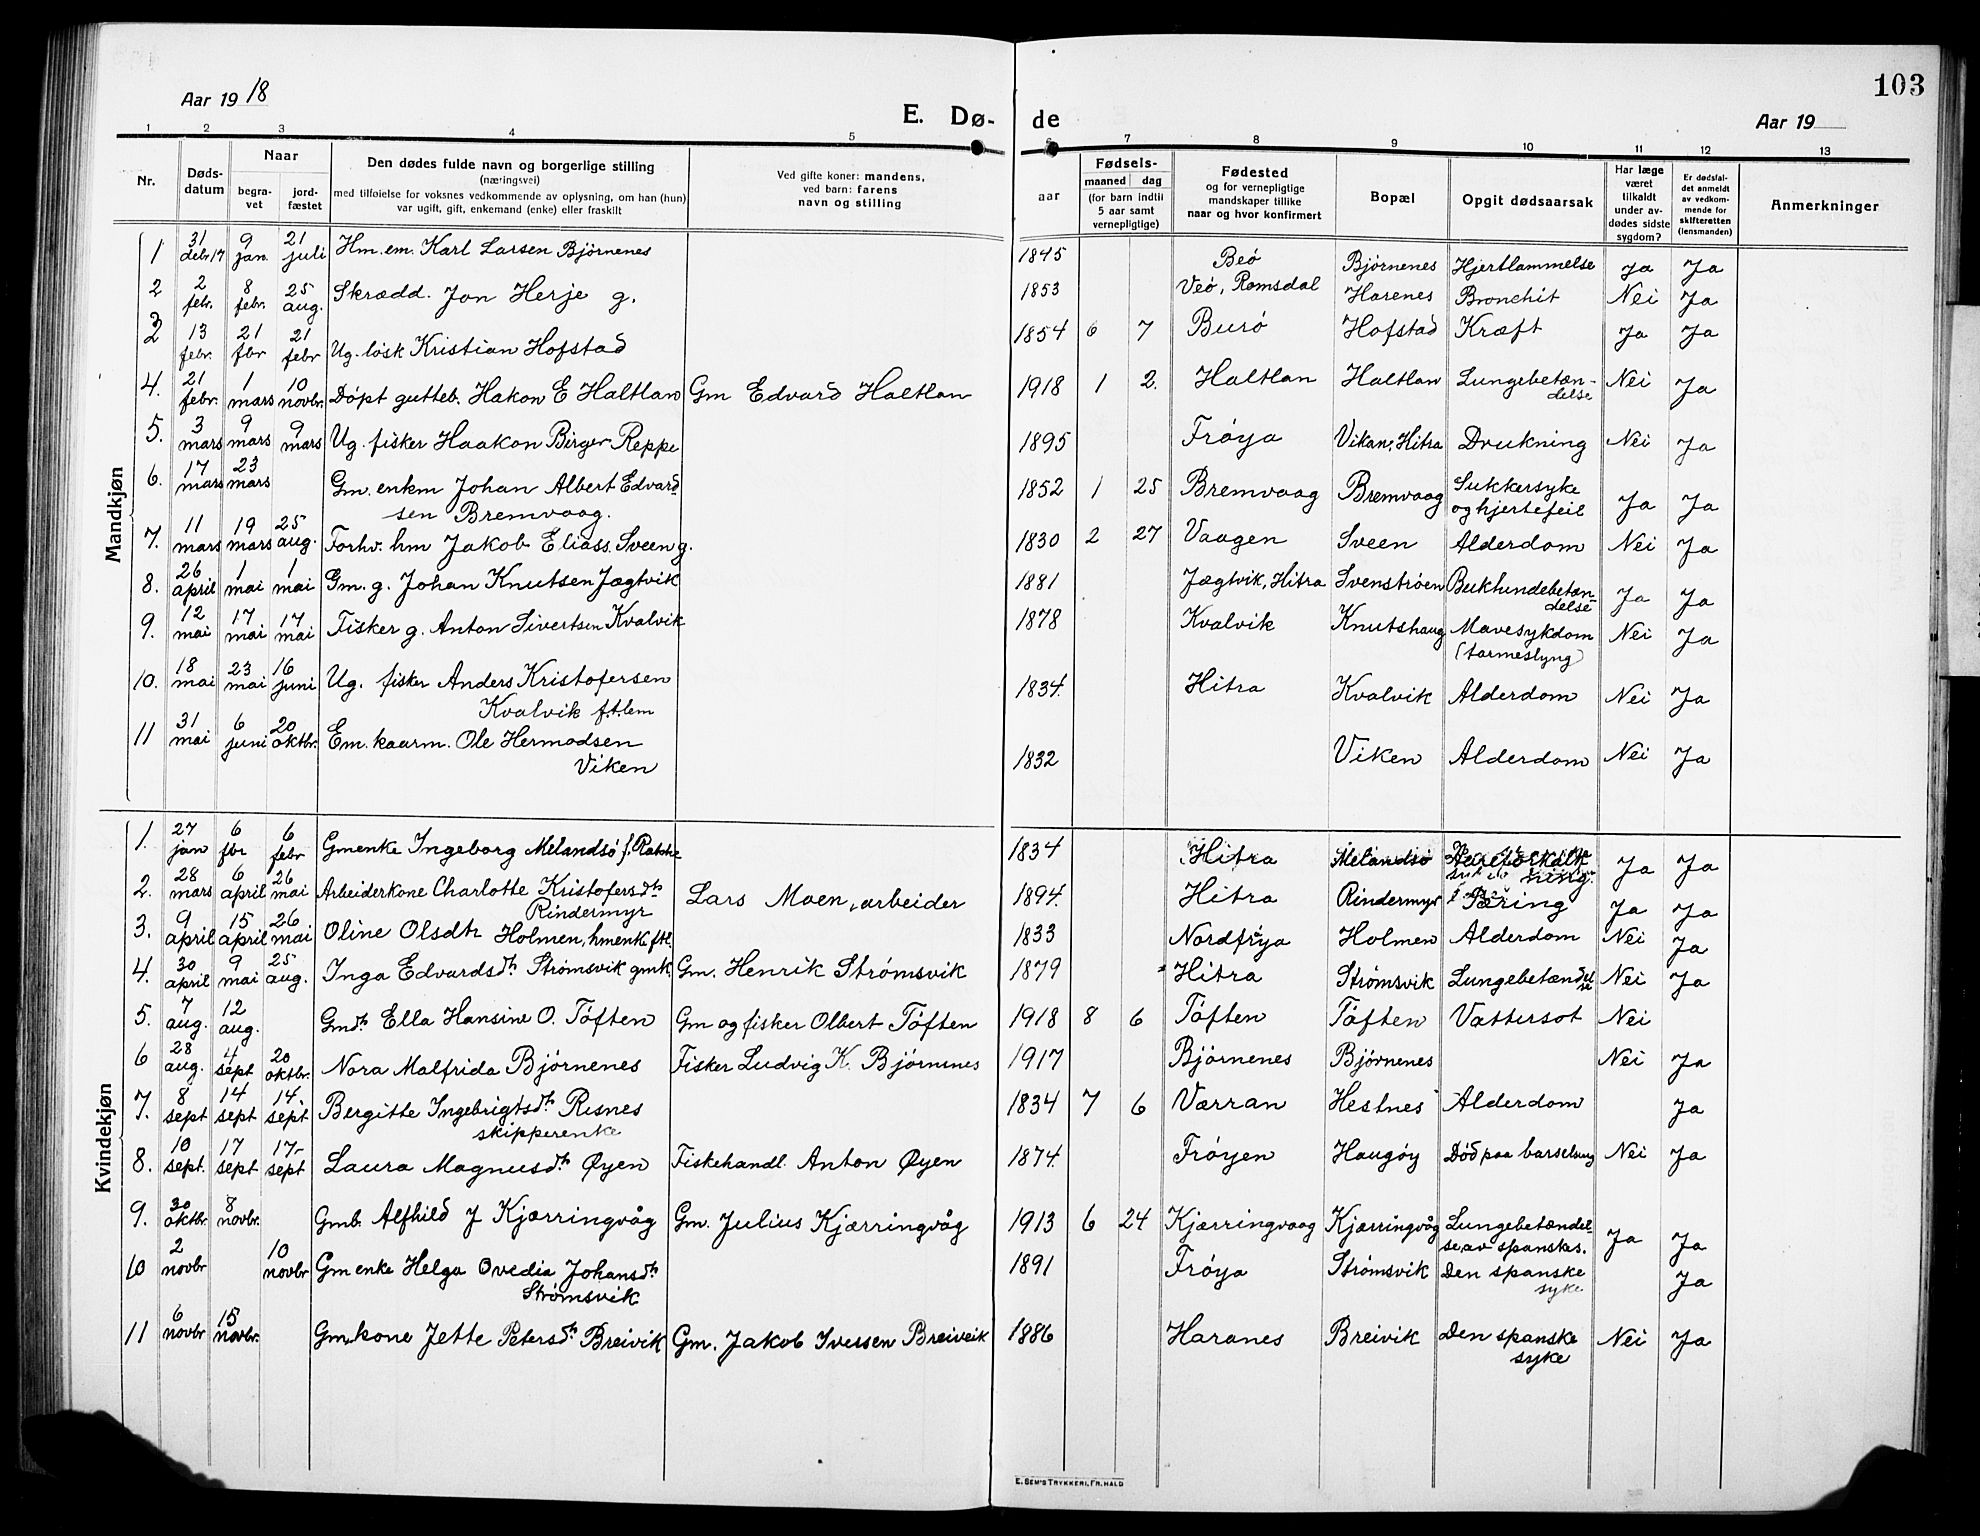 103
Aar 19 18
E. Dø- de
Aar 19
1 2 3 4 5 6 7 8 9 10 11 12 13
Nr.
Døds-
datum
Naar
begra-
vet
jord-
fæstet
Den dødes fulde navn og borgerlige stilling
(næringsvei)
med tilføielse for voksnes vedkommende av oplysning, om han (hun)
var ugift, gift, enkemand (enke) eller fraskilt
Ved gifte koner: mandens,
ved barn: farens
navn og stilling
aar
Fødsels-
maaned dag
(for barn indtil
5 aar samt
vernepligtige)
Fødested
og for vernepligtige
mandskaper tillike
naar og hvor konfirmert
Bopæl
Opgit dødsaarsak
Har læge
været
tilkaldt
under av-
dødes sidste
sygdom?
Er dødsfal-
det anmeldt
av vedkom-
mende for
skifteretten
(lensmanden)
Anmerkninger
Mandkjøn
1 31 debr 17 9 jan. 21 juli Hm. em. Karl Larsen Bjørnenes 1845 Beö Bjørnenes Hjertlammelse Ja Ja
2 2 febr. 8 febr. 25 aug. Skrædd. Jon Herje g. 1853 Veö, Romsdal Harenes Bronchit Nei Ja
3 13 febr. 21 fbr 21 febr Ug. løsk Kristian Hofstad 1854 6 7 Burö Hofstad Kræft Ja Ja
4. 21 febr. 1 mars 10 novbr. Döpt gutteb. Hakon E Haltlan Gm Edvard Haltlan 1918 1 2. Haltlan Haltlan Lungebetæn-
delse Nei Ja
5. 3 mars 9 mars 9 mars Ug. fisker Haakon Birger Reppe 1895 Fröya Vikan, Hitra Drukning Nei Ja
6. 17 mars 23 mars Gm. enkm Johan Albert Edvard-
sen Bremvaag. 1852 1 25 Bremvaag Bremvaag Sukkersyke
og hjertefeil Ja Ja
7. 11 mars 19 mars 25 aug. Forhv. hm Jakob Eliass. Sveen g. 1830 2 27 Vaagen Sveen Alderdom Nei Ja
8. 26 april 1 mai 1 mai Gm. g. Johan Knutsen Jægtvik 1881 Jægtvik, Hitra Svenströen Bukhindebetæn-
delse Ja Ja
9. 12 mai 17 mai 17 mai Fisker g. Anton Sivertsen Kvalvik 1878 Kvalvik Knutshaug Mavesykdom
(tarmeslyng) Nei Ja
10. 18 mai 23 mai 16 juni Ug. fisker Anders Kristofersen
Kvalvik f.t.lem 1834. Hitra Kvalvik Alderdom Nei Ja
11 31 mai 6 juni 20 oktbr. Em. kaarm. Ole Hermodsen
Viken 1832 Viken Alderdom Nei Ja
Kvindekjøn
1. 27 jan 6 fbr 6 febr Gmenke Ingeborg Melandsö 1834 Hitra Melandsö Aareforkalk
ning. Ja Ja
2. 28 mars 6 april 26 mai Arbeiderkone Charlotte Kristofersdtr
Rindermyr Lars Moen, arbeider 1894. Hitra Rindermyr Tæring Ja Ja
3. 9 april 15 april 26 mai Oline Olsdtr Holmen, hmenk. ftl. 1833 Nordfröya Holmen Alderdom Nei Ja
4. 30 april 9 mai 25 aug. Inga Edvardsdtr Strømsvik gmk. Gm. Henrik Strømsvik 1879 Hitra Strømsvik Lungebetændel
se Nei Ja
5. 7 aug. 12 aug. Gmdtr Ella Hansine O. Töften Gm og fisker Olbert Töften 1918 8 6 Töften Töften Vattersot Nei
6 28 aug. 4 sept 20 oktbr. Nora Malfrida Bjørnenes Fisker Ludvig K. Bjørnenes 1917 Bjørnenes Bjørnenes Nei Ja
7. 8 sept 14 sept 14. sept Bergitte Ingebrigtsdtr Risnes
skipperenke 1834 7 6 Værran Hestnes Alderdom Ja
8. 10 sept. 17 sept 17- sept Laura Magnusdtr Øyen Fiskehandl. Anton Øyen 1874. Fröyen Haugöy Död paa barselseng Nei Ja
9. 30 oktbr. 8 novbr. Gmb. Alfhild J Kjærringvåg Gm. Julius Kjærringvåg 1913 6 24 Kjærringvaag Kjærringvåg Lungebetændel-
se, av spanskes. Ja Ja
10 2 novbr 10 novbr Gm enke Helga Ovedia Johansdtr
Strømsvik 1891 Fröya Strømsvik Den spanske
syke Ja
11 6 novbr 15 novbr. Gm kone Jette Petersdtr Breivik Gm. Jakob Iversen Breiveik 1886 Haranes Breivik Den spanske
syke Nei Ja
E. SEM'S TRYKKERI, FR.HALD